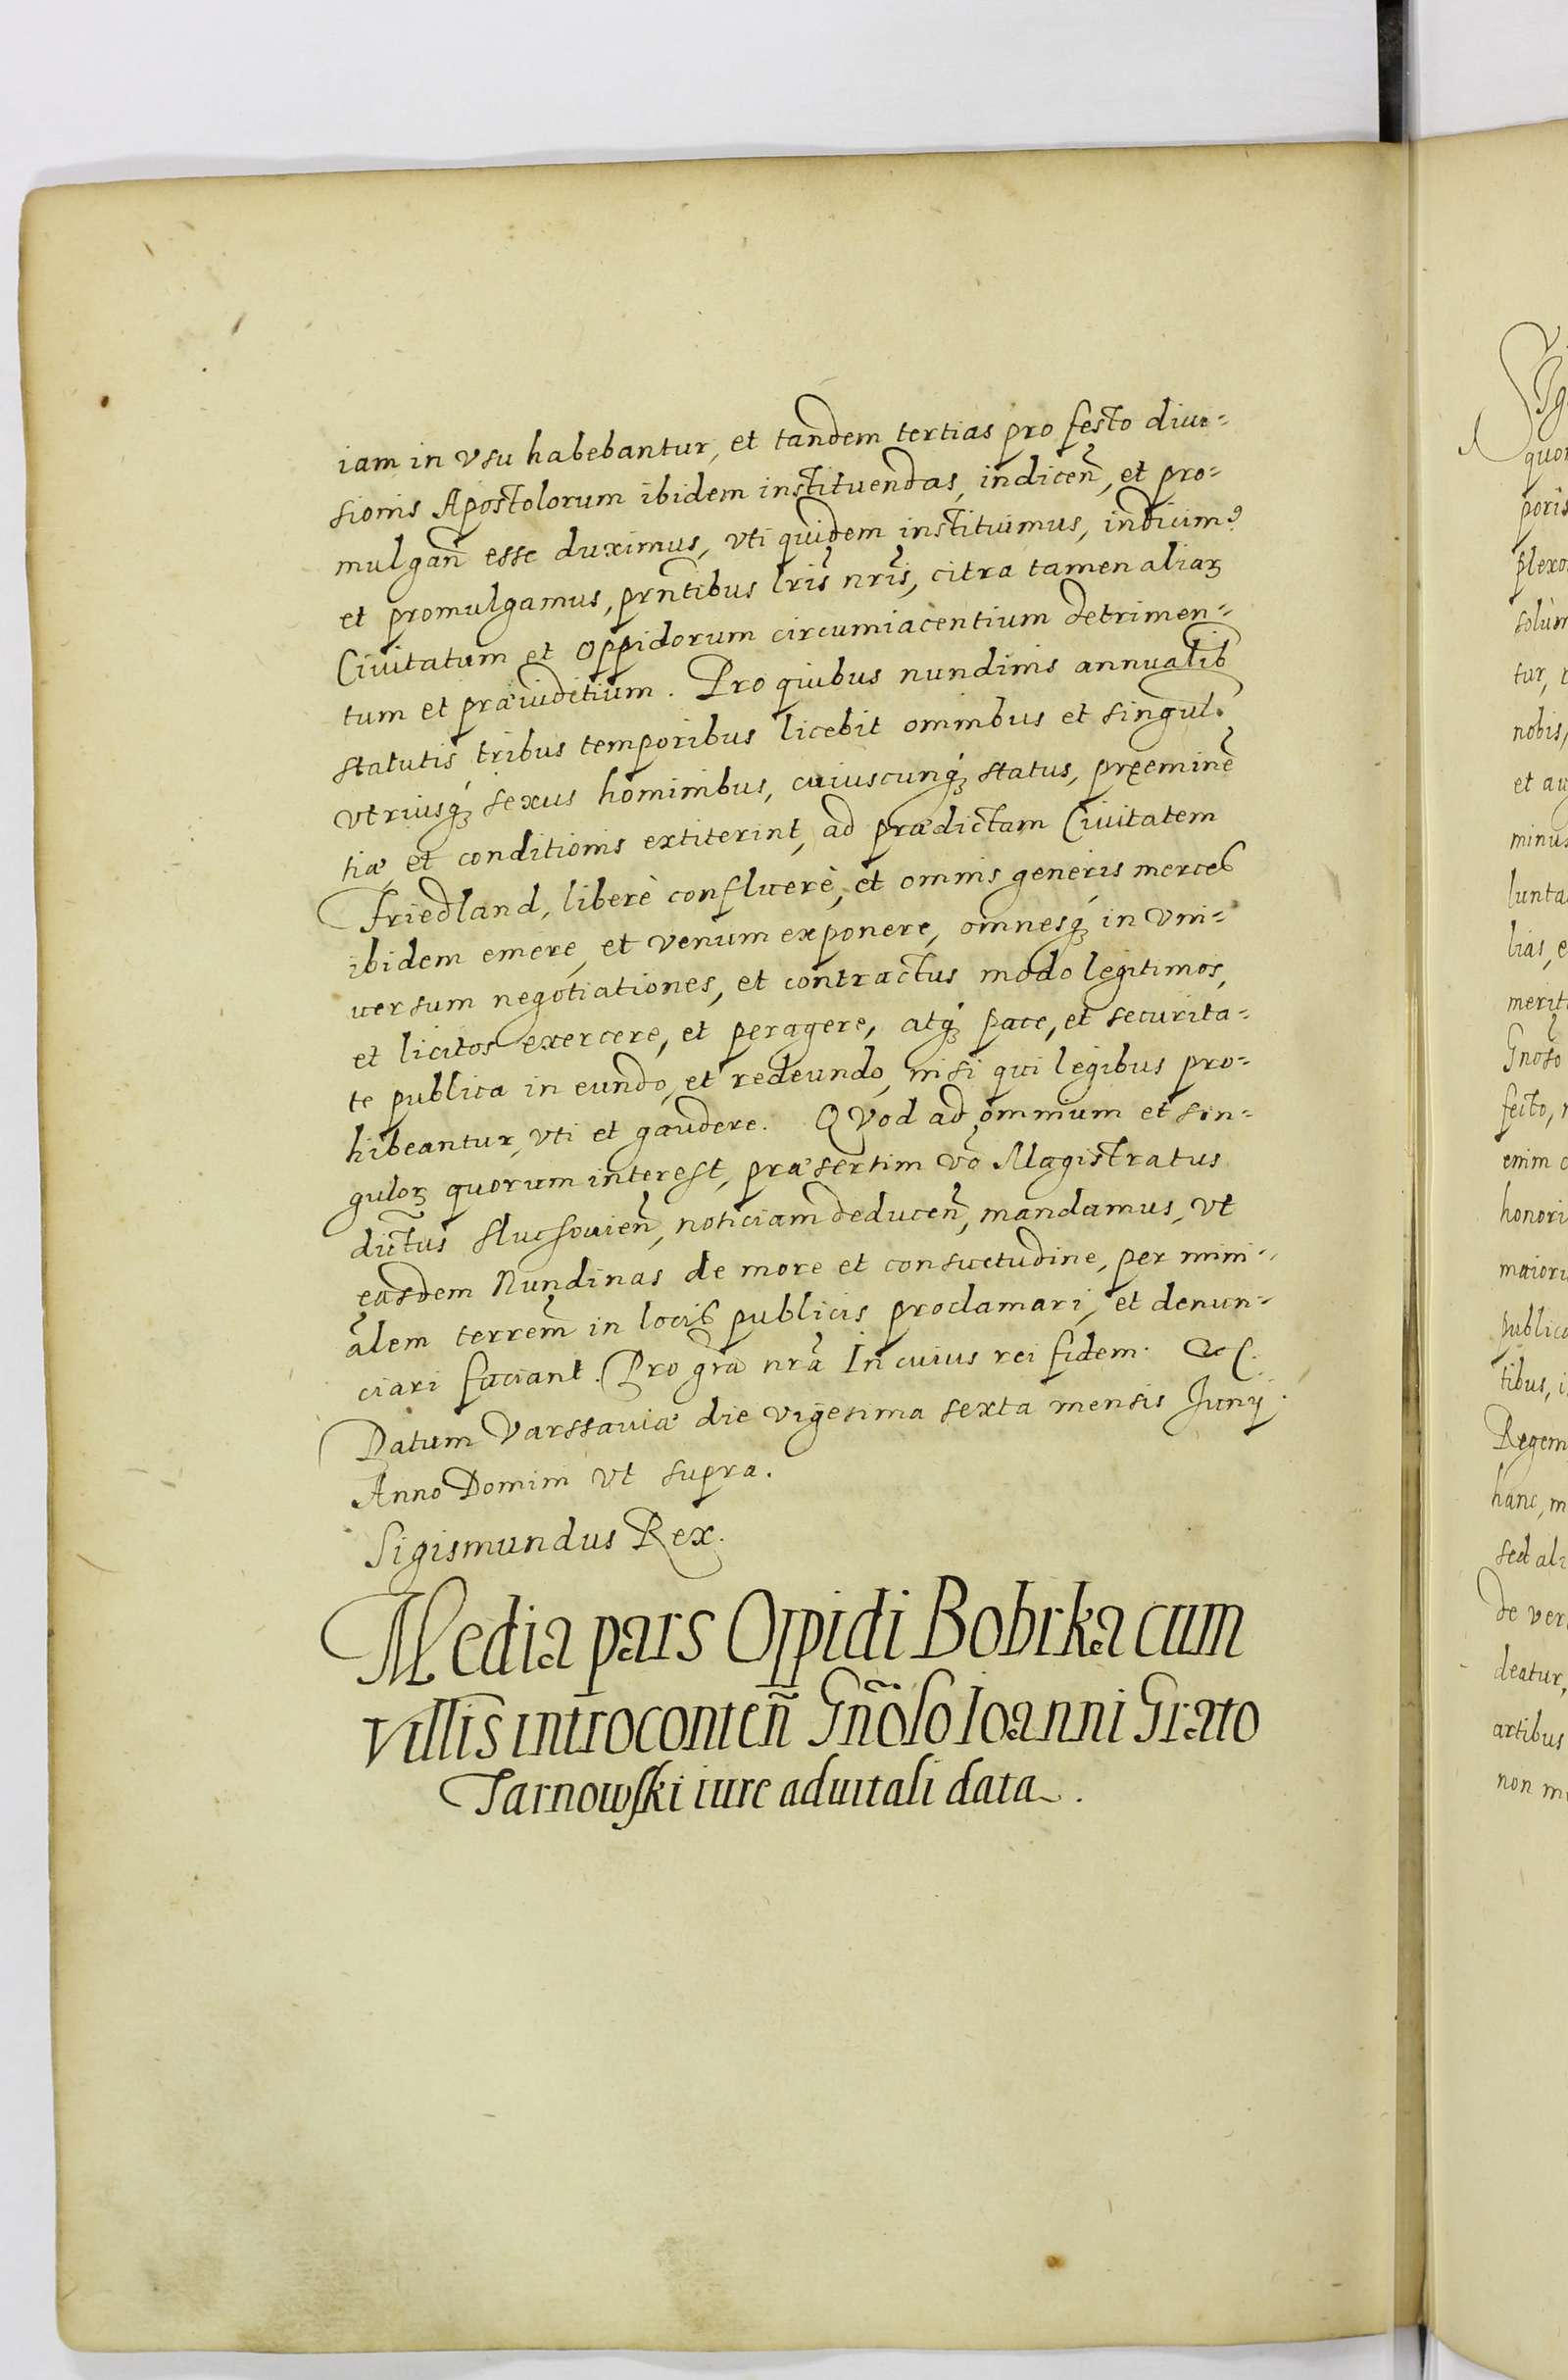 iam in vsu habebantur, et tandem tertias pro festo diui-
sionis Apostolorum ibidem instituendas, indiceñ, et pro-
mulgañ esse duximus, vti quidem instituimus, indicimꝰ
et promulgamus, prñtibus lris̃ nris̃, citra tamen aliaꝝ
Ciuitatum et oppidorum circumiacentium detrimen-
tum et præiuditium. Pro quibus nundinis annualib
statutis tribus temporibus licebit omnibus et singul.
vtriusqꝫ sexus hominibus, cuiuscunqꝫ status, pręemineñ
tiæ et conditionis extiterint, ad prædictam Ciuitatem
Friedland, liberè confluere, et omnis generis merces
ibidem emere, et venum exponere, omnesqꝫ in vni-
uersum negotiationes, et contractus modo legitimos,
et licitos exercere, et peragere, atqꝫ pace, et securita-
te publica in eundo, et redeundo, nisi qui legibus pro-
hibeantur, vti et gaudere. Quod ad omnium et sin-
guloꝝ quorum interest, præsertim vō Magistratus
dictus Slucsouieñ, noticiam deduceñ, mandamus, vt
easdem Nundinas de more et consuetudine, per mini-
ãlem terrem̃ in locis publicis proclamari, et denun-
ciari faciant. Pro grã nrã In cuius rei fidem. &c.
Datum Varssauiæ die vigesima sexta mensis Junij.
Anno Domini vt supra.
Sigismundus Rex.
Media pars Oppidi Bobrka cum
villis introconteñ Gñoso Ioanni Grato
Tarnowski iure aduitali data.
quor
poris
plexo
solum
tur,
nobis,
et au
minus
lunta
lias, e
merit
Gnoso
fecto,
enim c
honori
maiori
publica
tibus, i
Regem
hanc, m
sed al
de ver
deatur,
artibus
non m